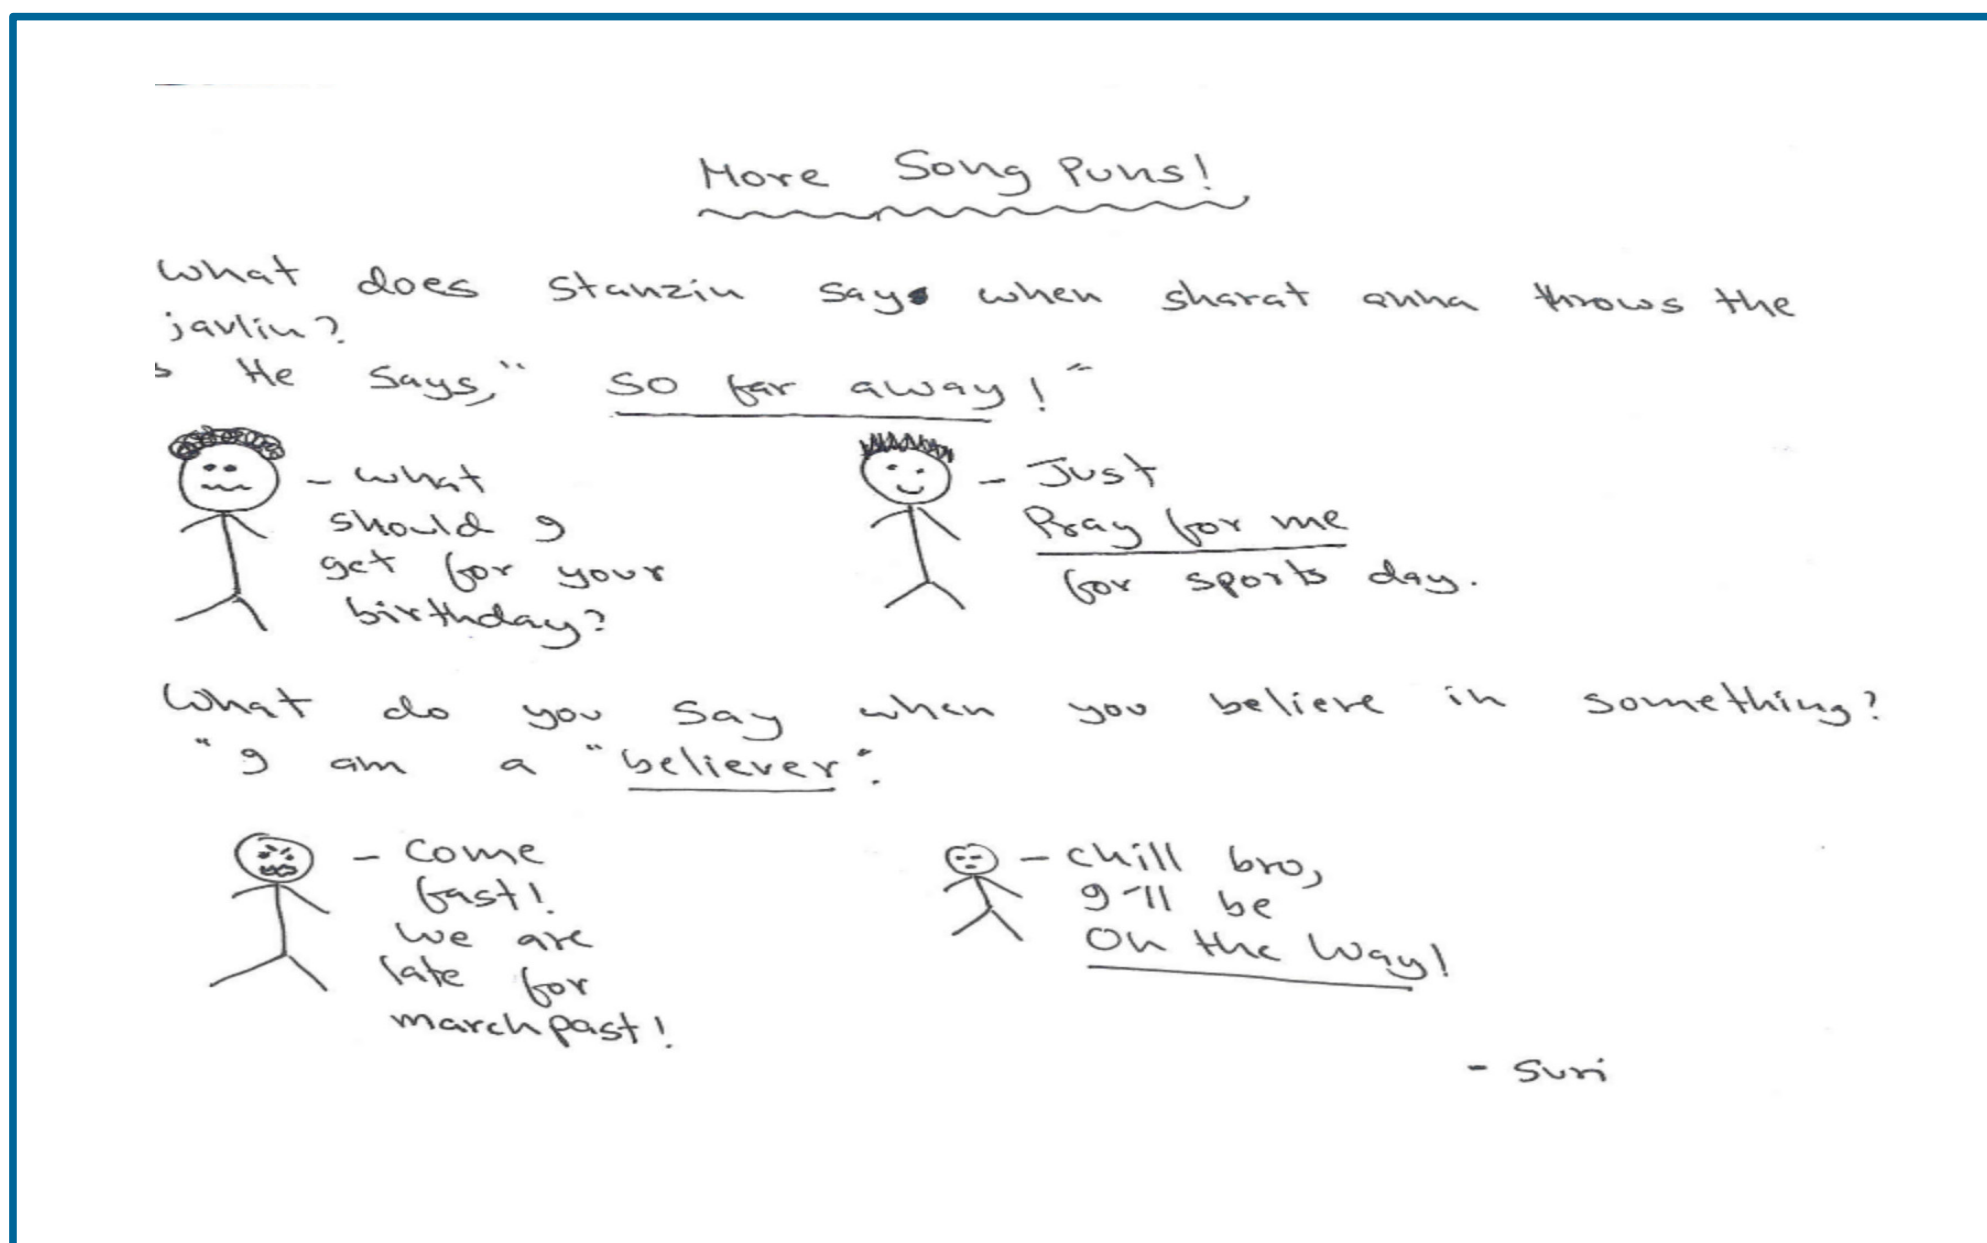 More Song Puns!
What does Stanzin say when sharat anna throws the
javlin?
He says," so far away!"
- what
should I
get for your
birthday?
- Just
Pray for me
for sports day.
What do you say when you believe in something?
"I am a "believer".
- Come
fast!
we are
late for
marchpast!
- chill bro,
I'll be
On the Way!
- Suri